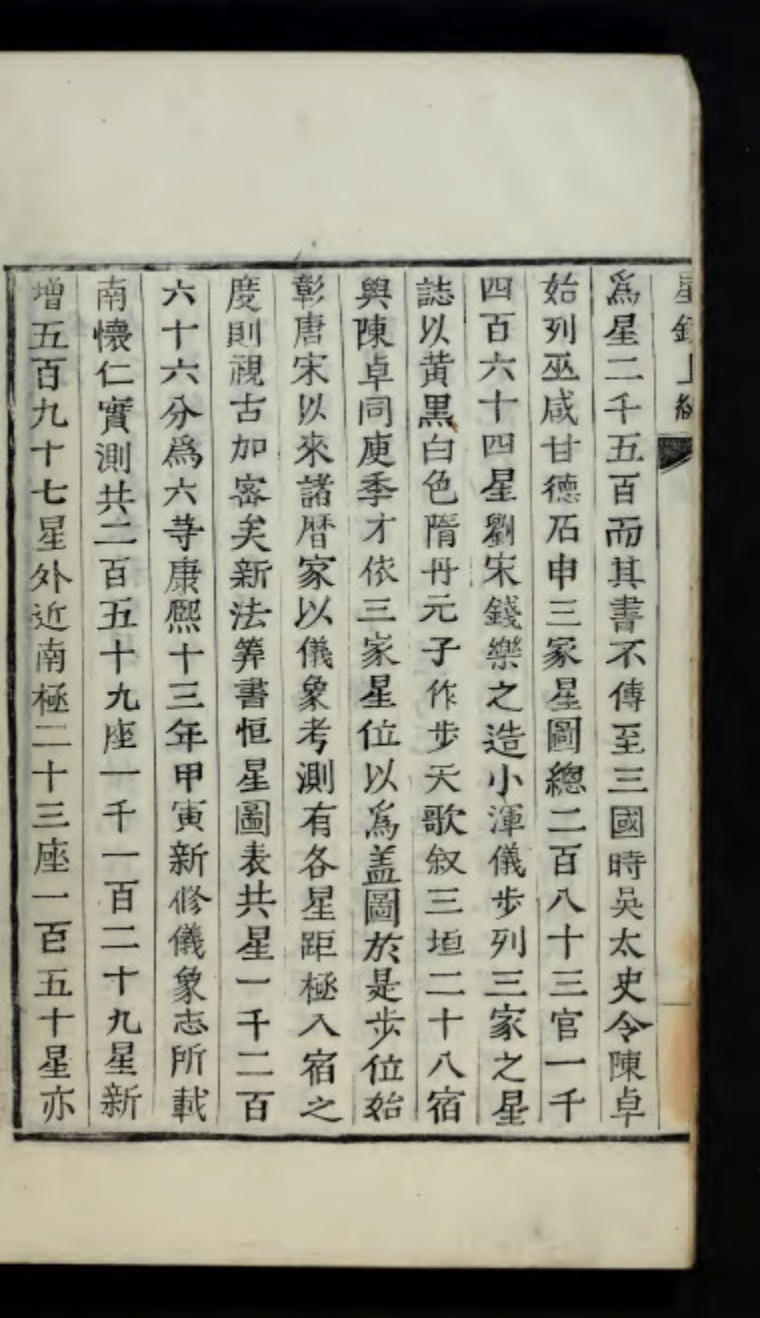 星鏡上卷
爲星二千五百而其書不傳至三國時吳太史令陳卓
始列巫咸甘德石申三家星圖總二百八十三官一千
四百六十四星劉宋錢樂之造小渾儀步列三家之星
誌以黃黑白色隋丹元子作步天歌叙三垣二十八宿
與陳卓同庾季才依三家星位以爲盖圖於是步位始
彰唐宋以來諸曆家以儀象考測有各星距極入宿之
度則視古加密矣新法筭書恒星圖表共星一千二百
六十六分爲六等康熙十三年甲寅新修儀象志所載
南懷仁實測共二百五十九座一千一百二十九星新
增五百九十七星外近南極二十三座一百五十星亦